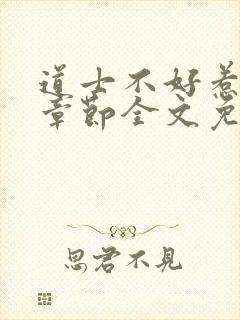 道士不好惹
章节全文免
思君不見